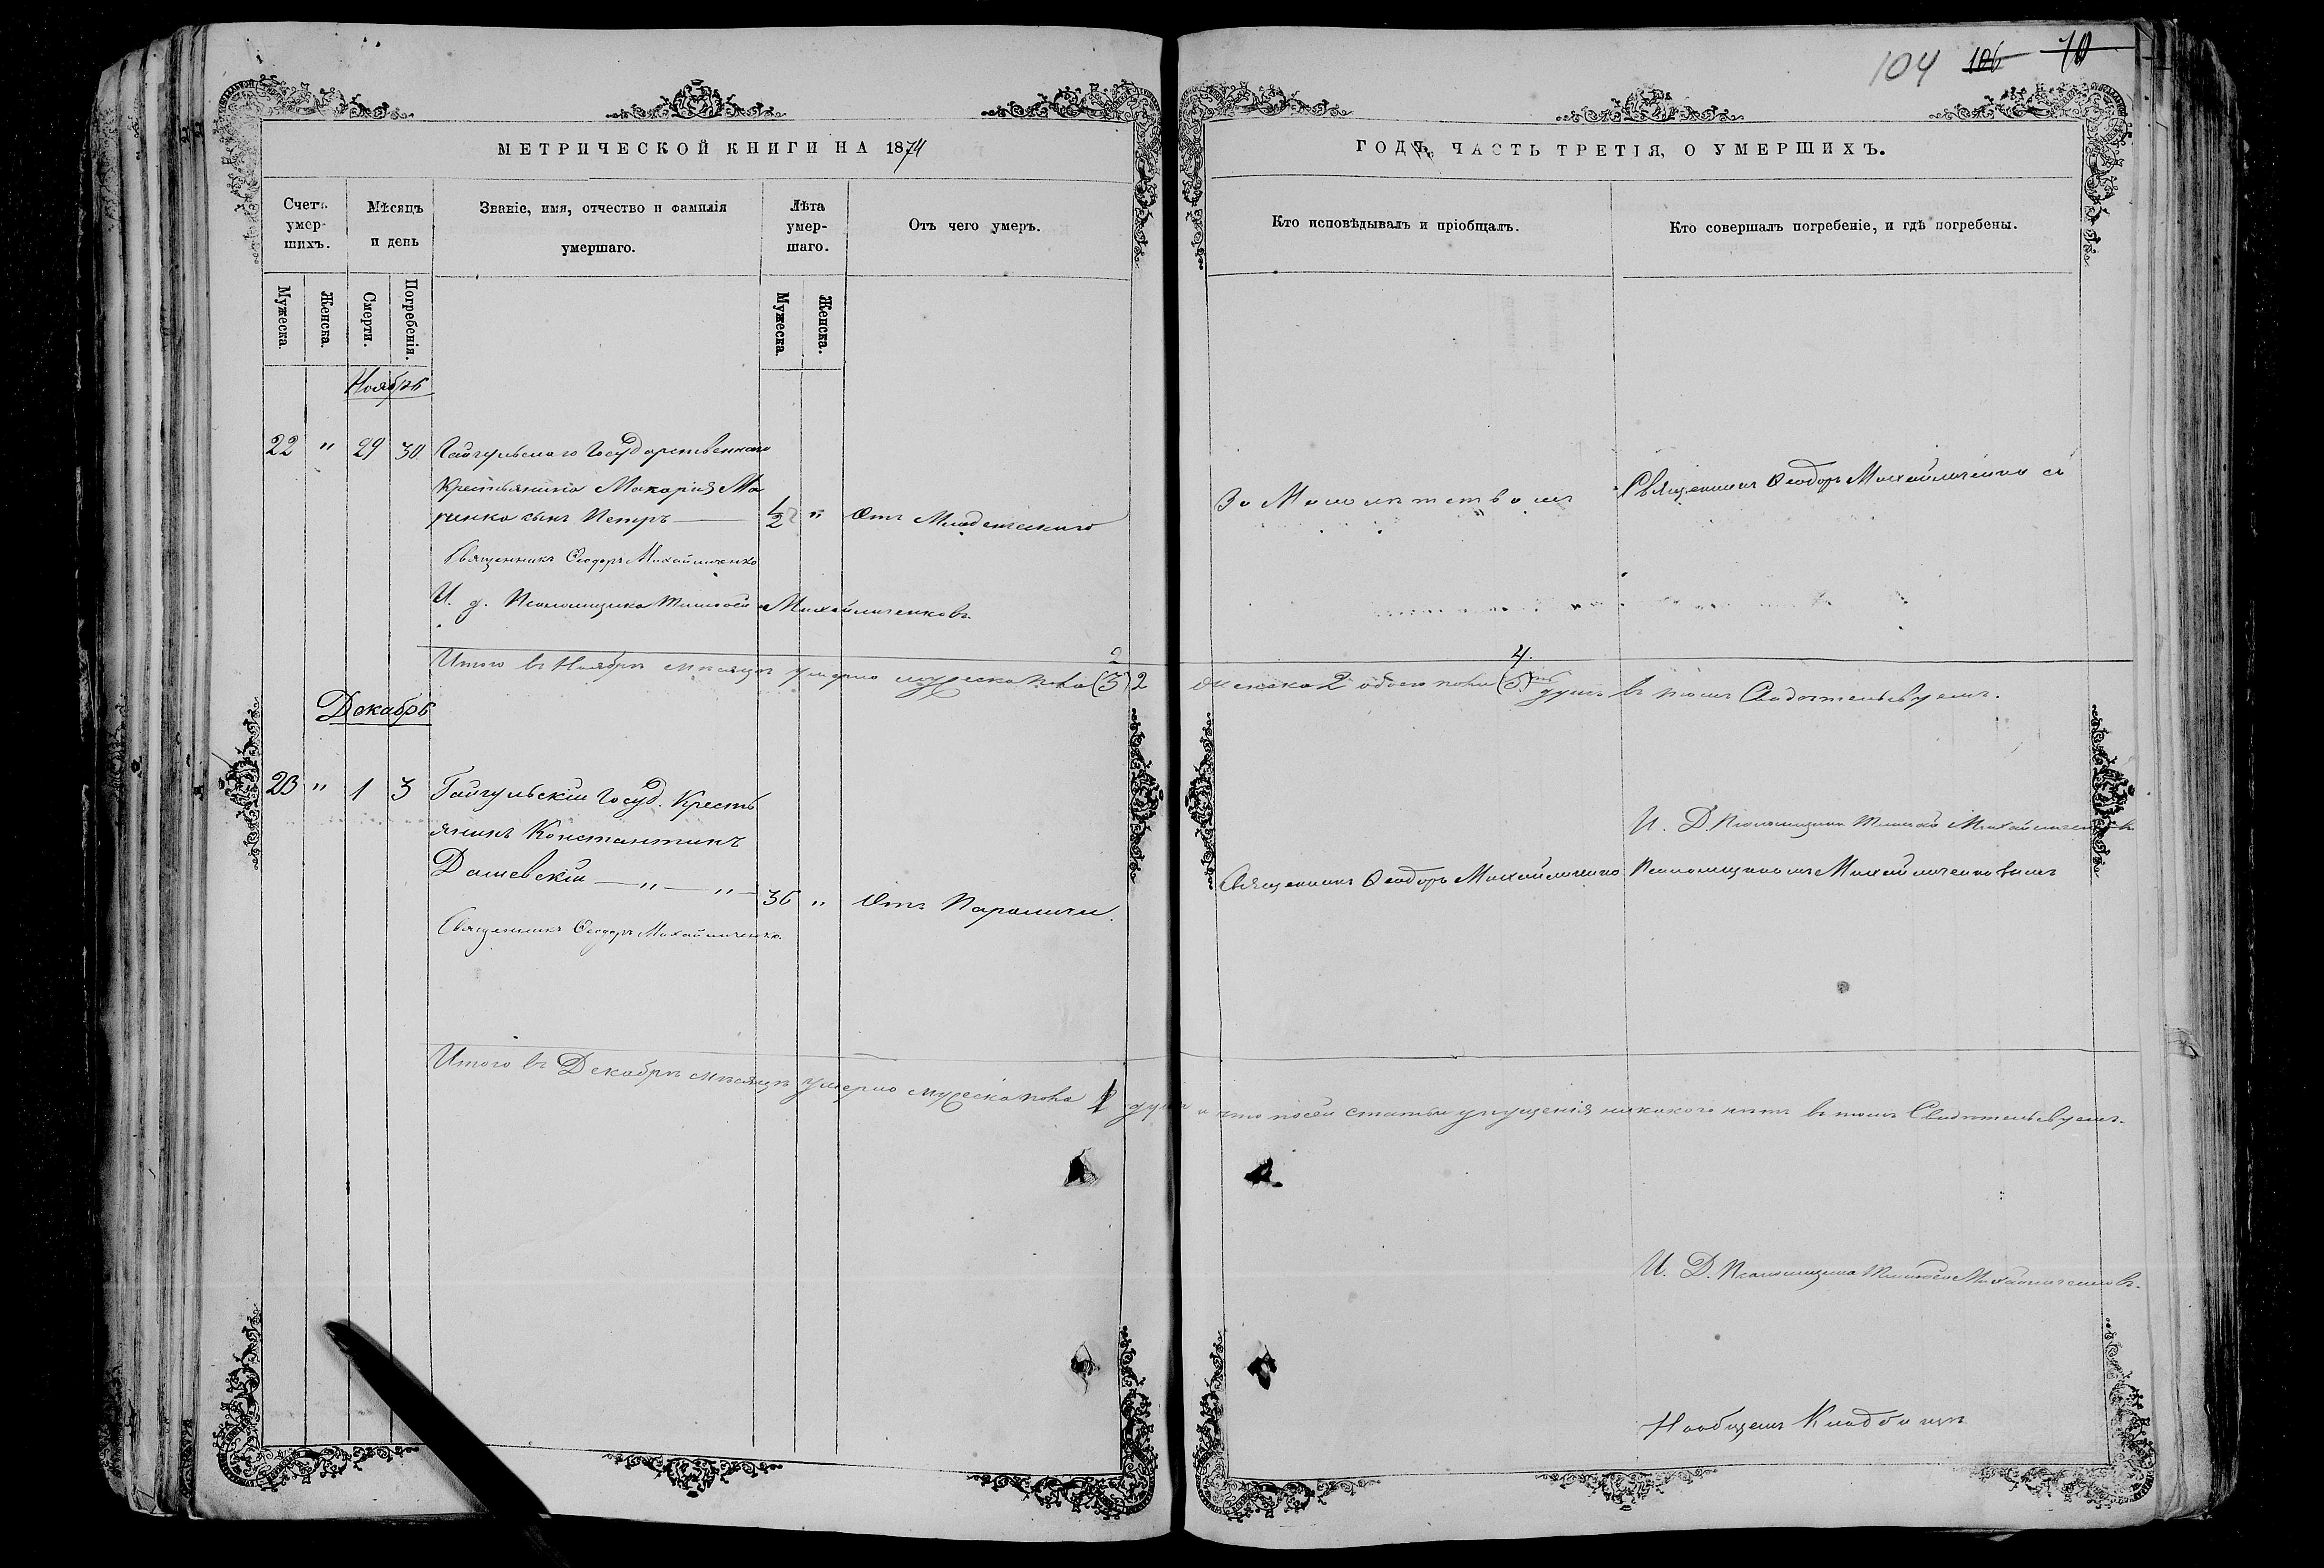 104 106 70
МЕТРИЧЕСКОЙ КНИГИ НА 1874
ГОДЪ, ЧАСТЬ ТРЕТІЯ, О УМЕРШИХЪ.
Счетъ умер-шихъ.
Мѣсяцъ и день
Званіе, имя, отчество и фамилія умершаго.
Лѣта умер-шаго.
Отъ чего умеръ.
Кто исповѣдывалъ и пріобщалъ.
Кто совершалъ погребеніе, и гдѣ погребены.
Мужеска.
Женска.
Смерти.
Погребенія.
Мужеска
Женска.
Ноябрь
22 " 29 30 Гайгульскаго Государственнаго
Крестьянина Макарія Ма
ринко сынъ Петръ — 1/2 " Отъ Младенческаго
За Малолѣтствомъ
Священникъ Ѳеодоръ Михайличенко съ
Священникъ Ѳеодоръ Михайличенко
И. д. Псаломщика Тимоѳей Михайличенковъ.
Итого въ Ноябрѣ мѣсяцѣ умерло мужеска пола (3) 2
2
4.
женска 2 обоего пола (5) душъ въ томъ Свидѣтельствуемъ.
Декабрь
23 " 1 3 Гайгульскій Госуд. Кресть
янинъ Константинъ
Дашевскій — " — " — 36 " Отъ Параличи.
И. Д. Псаломщика Тимоѳей Михайличенковъ
Священникъ Ѳеодоръ Михайличенко
Псаломщикомъ Михайличенковымъ
Священникъ Ѳеодоръ Михайличенко.
Итого въ Декабрѣ мѣсяцѣ умерло мужеска пола 1
душа и что посей статьи упущенія никакого нѣтъ въ томъ Свидѣтельствуемъ.
И. Д. Псаломщика Тимоѳей Михайличенковъ.
На общемъ Кладбищѣ